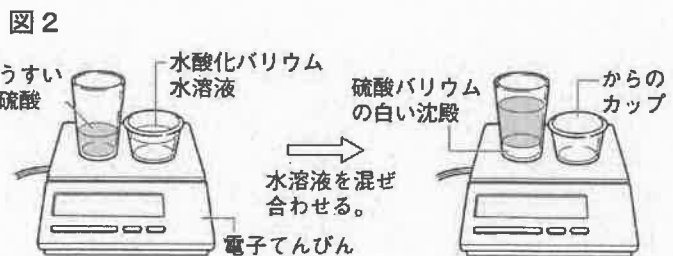 図2
うすい
硫酸
水酸化バリウム
水溶液
水溶液を混ぜ
合わせる。
電子てんびん
硫酸バリウム
の白い沈殿
からの
カップ